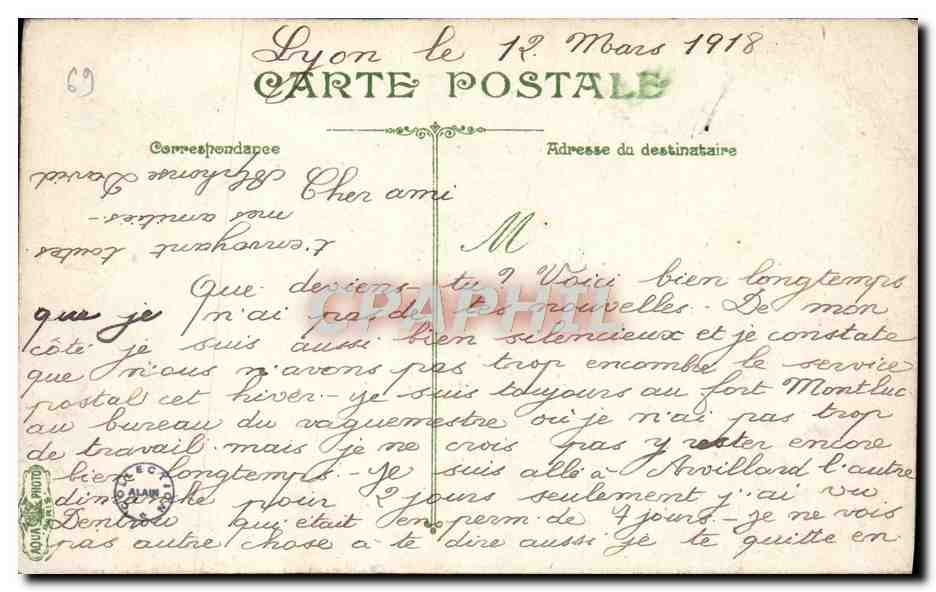 69
Lyon le 12 Mars 1918
CARTE POSTALE
Correspondance
Adresse du destinataire
Cher ami
M
Que deviens-tu? Voici bien longtemps
que je n'ai pas de tes nouvelles. De mon
côté je suis aussi bien silencieux et je constate
que nous n'avons pas trop encombré le service
postal cet hiver. - Je suis toujours au fort Montluc
au bureau du vaguemestre où je n'ai pas trop
de travail. mais je ne crois pas y rester encore
bien longtemps. - Je suis allé à Arvillard l'autre
dimanche pour 2 jours seulement j'ai vu
qui était en perm. de 7 jours. - Je ne vois
pas autre chose à te dire aussi je te quitte en
t'envoyant toutes
mes amitiés -
Alphonse David
CPAPHIL
COLLECTIONS
ALAIN
AQUA PHOTO
PARIS